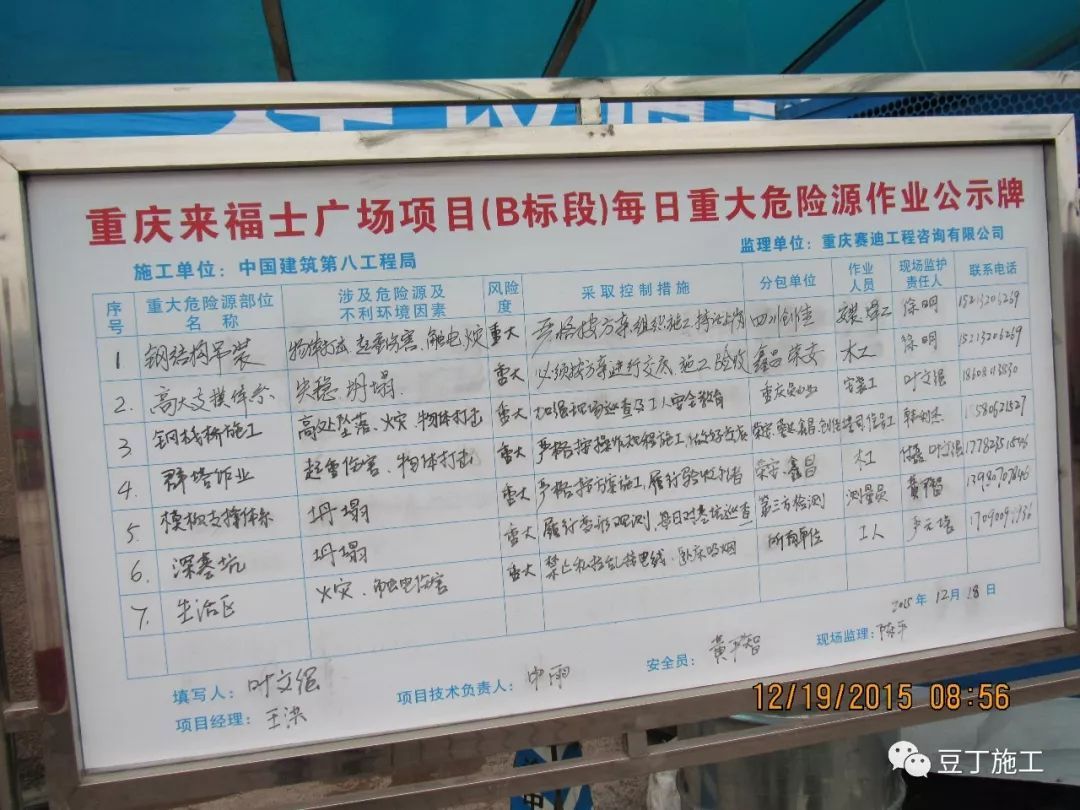 重庆来福士广场项目(B标段)每日重大危险源作业公示牌
施工单位：中国建筑第八工程局 监理单位：重庆赛迪工程咨询有限公司
序号 重大危险源部位名称 涉及危险源及不利环境因素 风险度 采取控制措施 分包单位 作业人员 现场监护责任人 联系电话
1 钢结构吊装 物体打击、起重伤害、触电、火灾 重大 严格按方案组织施工、持证上岗 四川创佳 安装、焊工 徐明 15213206269
2. 高大支模体系 失稳、坍塌. 重大 必须按方案进行交底、施工、验收 鑫昌、荣安 木工 徐明 15213206269
3 钢栈桥施工 高处坠落、火灾、物体打击 重大 加强现场巡查及工人安全教育 安装工 叶文强
4. 群塔作业 起重伤害、物体打击 重大 严格按操作规程施工、
5. 模板支撑体系 坍塌 重大 严格按方案施工、履行验收 荣安、鑫昌 木工 叶文强
6. 深基坑 坍塌 重大 履行变形观测、每日对基坑巡查 第三方检测 测量员
7. 生活区 火灾、触电伤害 重大 禁止私拉乱接电线、卧床吸烟 所有单位 工人
2015 年 12 月 18 日
填写人：叶文强 项目技术负责人：申雨 安全员： 现场监理：陈平
项目经理：王洪
12/19/2015 08:56
豆丁施工